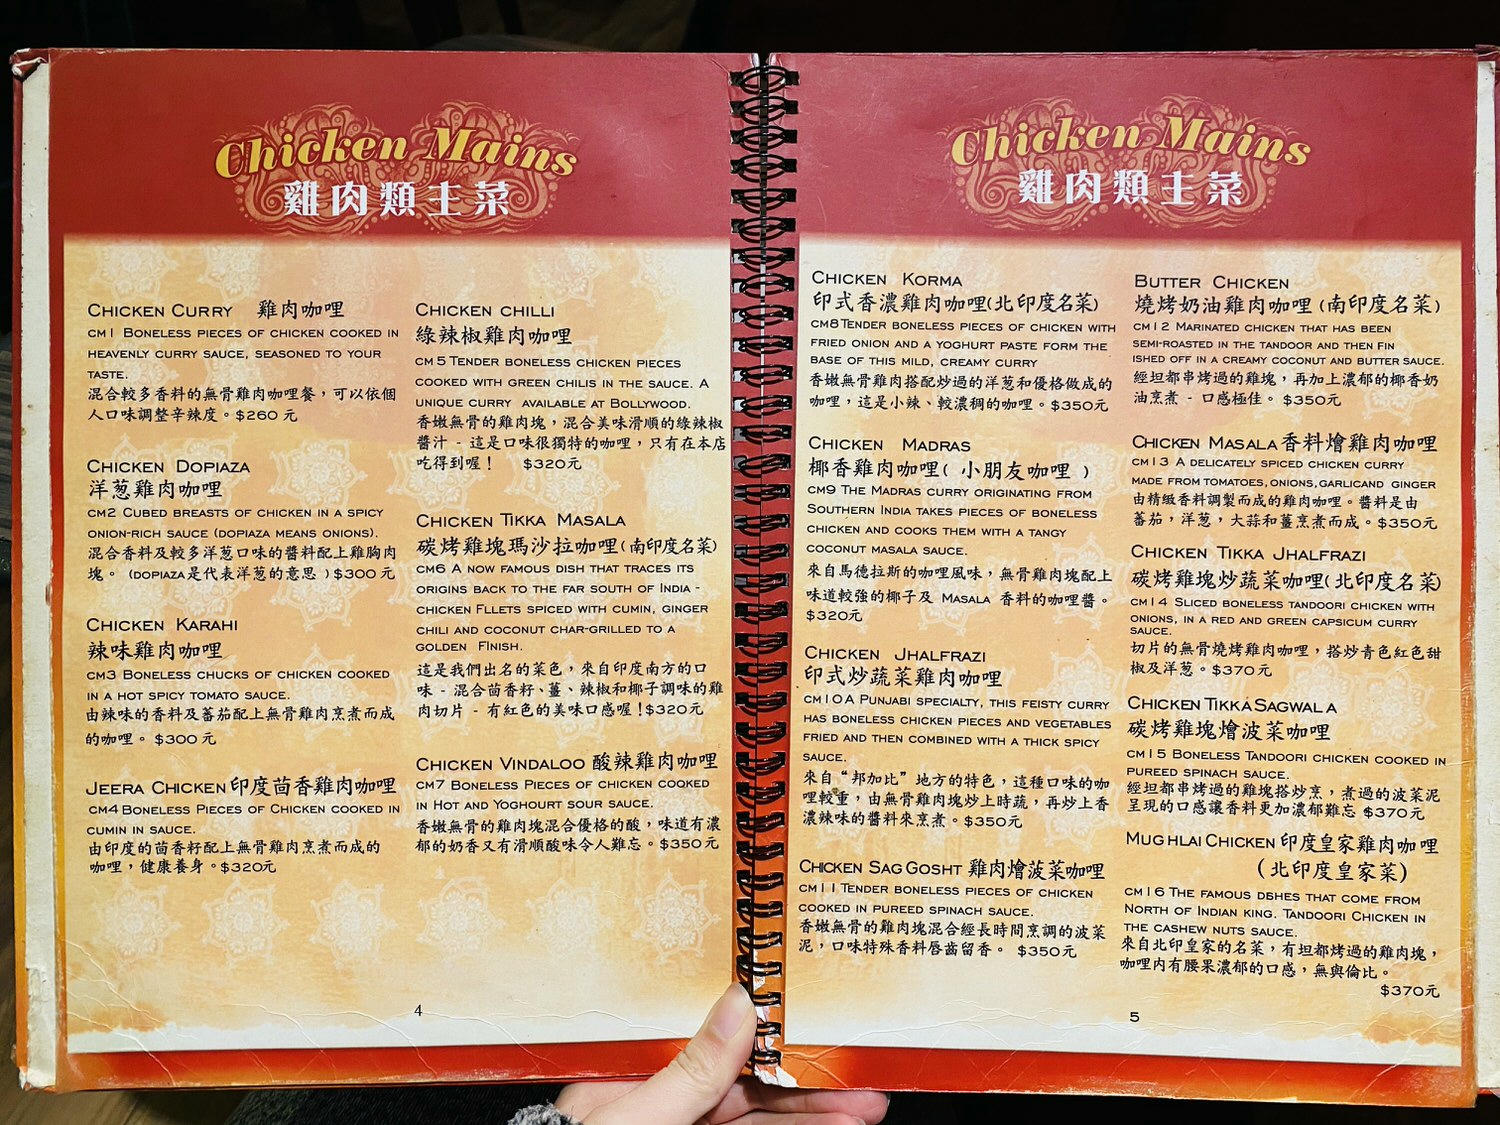 Chicken Mains
雞肉類主菜
CHICKEN CURRY 雞肉咖哩
CM1 BONELESS PIECES OF CHICKEN COOKED IN
HEAVENLY CURRY SAUCE, SEASONED TO YOUR
TASTE.
混合較多香料的無骨雞肉咖哩餐，可以依個
人口味調整辛辣度。$260元
CHICKEN DOPIAZA
洋葱雞肉咖哩
CM2 CUBED BREASTS OF CHICKEN IN A SPICY
ONION-RICH SAUCE (DOPIAZA MEANS ONIONS).
混合香料及較多洋葱口味的醬料配上雞胸肉
塊。 (DOPIAZA是代表洋葱的意思 )$300元
CHICKEN KARAHI
辣味雞肉咖哩
CM3 BONELESS CHUCKS OF CHICKEN COOKED
IN A HOT SPICY TOMATO SAUCE.
由辣味的香料及蕃茄配上無骨雞肉烹煮而成
的咖哩。 $300元
JEERA CHICKEN 印度茴香雞肉咖哩
CM4 BONELESS PIECES OF CHICKEN COOKED IN
CUMIN IN SAUCE.
由印度的茴香籽配上無骨雞肉烹煮而成的
咖哩，健康養身。$320元
CHICKEN CHILLI
綠辣椒雞肉咖哩
CM5 TENDER BONELESS CHICKEN PIECES
COOKED WITH GREEN CHILIS IN THE SAUCE. A
UNIQUE CURRY AVAILABLE AT BOLLYWOOD.
香嫩無骨的雞肉塊，混合美味滑順的綠辣椒
醬汁 - 這是口味很獨特的咖哩，只有在本店
吃得到喔！ $320元
CHICKEN TIKKA MASALA
碳烤雞塊瑪沙拉咖哩(南印度名菜)
CM6 A NOW FAMOUS DISH THAT TRACES ITS
ORIGINS BACK TO THE FAR SOUTH OF INDIA -
CHICKEN FLLETS SPICED WITH CUMIN, GINGER
CHILI AND COCONUT CHAR-GRILLED TO A
GOLDEN FINISH.
這是我們出名的菜色，來自印度南方的口
味 - 混合茴香籽、薑、辣椒和椰子調味的雞
肉切片 - 有紅色的美味口感喔！$320元
CHICKEN VINDALOO 酸辣雞肉咖哩
CM7 BONELESS PIECES OF CHICKEN COOKED
IN HOT AND YOGHOURT SOUR SAUCE.
香嫩無骨的雞肉塊混合優格的酸，味道有濃
郁的奶香又有滑順酸味令人難忘。$350元
4
Chicken Mains
雞肉類主菜
CHICKEN KORMA
印式香濃雞肉咖哩(北印度名菜)
CM8 TENDER BONELESS PIECES OF CHICKEN WITH
FRIED ONION AND A YOGHURT PASTE FORM THE
BASE OF THIS MILD, CREAMY CURRY
香嫩無骨雞肉搭配炒過的洋葱和優格做成的
咖哩，這是小辣、較濃稠的咖哩。$350元
CHICKEN MADRAS
椰香雞肉咖哩( 小朋友咖哩 )
CM9 THE MADRAS CURRY ORIGINATING FROM
SOUTHERN INDIA TAKES PIECES OF BONELESS
CHICKEN AND COOKS THEM WITH A TANGY
COCONUT MASALA SAUCE.
來自馬德拉斯的咖哩風味，無骨雞肉塊配上
味道較強的椰子及 MASALA 香料的咖哩醬。
$320元
CHICKEN JHALFRAZI
印式炒蔬菜雞肉咖哩
CM10 A PUNJABI SPECIALTY, THIS FEISTY CURRY
HAS BONELESS CHICKEN PIECES AND VEGETABLES
FRIED AND THEN COMBINED WITH A THICK SPICY
SAUCE.
來自“邦加比”地方的特色，這種口味的咖
哩較重，由無骨雞肉塊炒上時蔬，再炒上香
濃辣味的醬料來烹煮。$350元
CHICKEN SAG GOSHT 雞肉燴菠菜咖哩
CM11 TENDER BONELESS PIECES OF CHICKEN
COOKED IN PUREED SPINACH SAUCE.
香嫩無骨的雞肉塊混合經長時間烹調的波菜
泥，口味特殊香料唇齒留香。 $350元
BUTTER CHICKEN
燒烤奶油雞肉咖哩(南印度名菜)
CM12 MARINATED CHICKEN THAT HAS BEEN
SEMI-ROASTED IN THE TANDOOR AND THEN FIN
ISHED OFF IN A CREAMY COCONUT AND BUTTER SAUCE.
經坦都串烤過的雞塊，再加上濃郁的椰香奶
油烹煮 - 口感極佳。 $350元
CHICKEN MASALA 香料燴雞肉咖哩
CM13 A DELICATELY SPICED CHICKEN CURRY
MADE FROM TOMATOES,ONIONS,GARLICAND GINGER
由精緻香料調製而成的雞肉咖哩。醬料是由
蕃茄，洋葱，大蒜和薑烹煮而成。$350元
CHICKEN TIKKA JHALFRAZI
碳烤雞塊炒蔬菜咖哩(北印度名菜)
CM14 SLICED BONELESS TANDOORI CHICKEN WITH
ONIONS, IN A RED AND GREEN CAPSICUM CURRY
SAUCE.
切片的無骨燒烤雞肉咖哩，搭炒青色紅色甜
椒及洋葱。$370元
CHICKEN TIKKA SAGWALA
碳烤雞塊燴波菜咖哩
CM15 BONELESS TANDOORI CHICKEN COOKED IN
PUREED SPINACH SAUCE.
經坦都串烤過的雞塊搭炒烹，煮過的波菜泥
呈現的口感讓香料更加濃郁難忘 $370元
MUGHLAI CHICKEN 印度皇家雞肉咖哩
(北印度皇家菜)
CM16 THE FAMOUS DBHES THAT COME FROM
NORTH OF INDIAN KING. TANDOORI CHICKEN IN
THE CASHEW NUTS SAUCE.
來自北印皇家的名菜，有坦都烤過的雞肉塊，
咖哩內有腰果濃郁的口感，無與倫比。
$370元
5